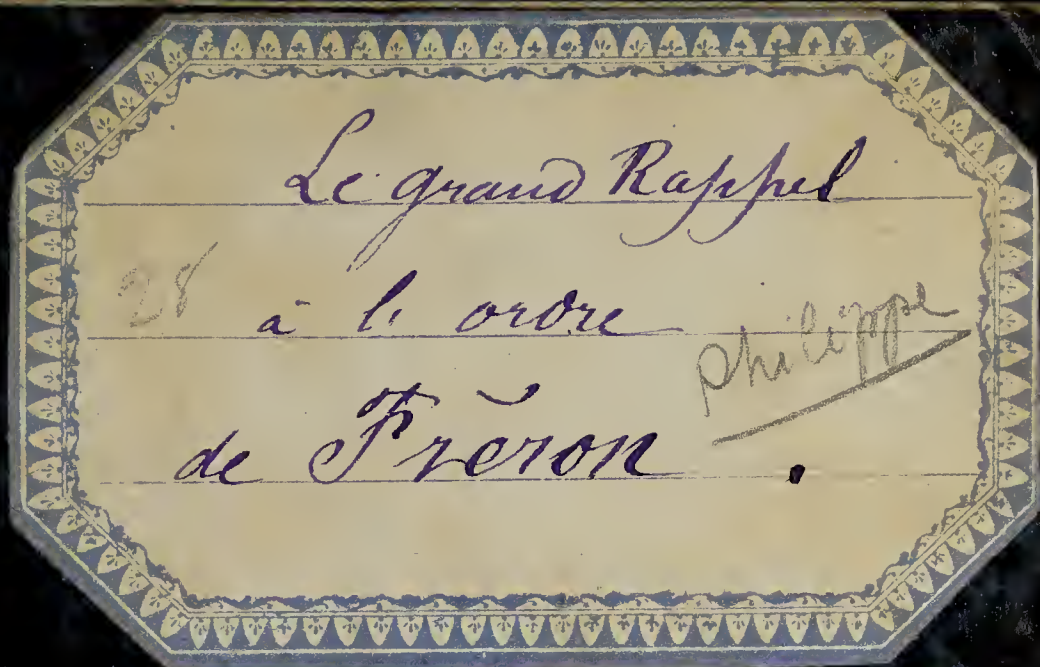 Le grand Rappel
28
à l' ordre
Philippe
de Fréron .